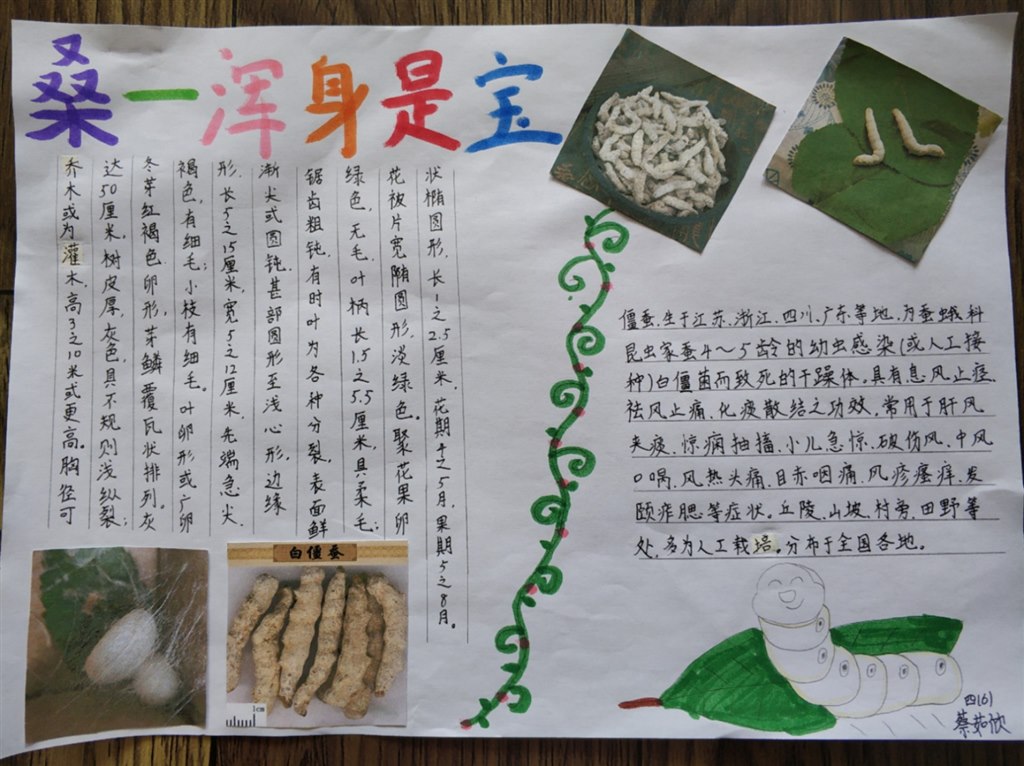 桑一浑身是宝
乔木或为灌木,高3之10米或更高。胸径可
达50厘米,树皮厚,灰色,具不规则浅纵裂;
冬芽红褐色,卵形,芽鳞覆瓦状排列。灰
褐色,有细毛;小枝有细毛。叶卵形或广卵
形.长5之15厘米,宽5之12厘米,先端急尖、
渐尖或圆钝,甚部圆形至浅心形,边缘
锯齿粗钝,有时叶为各种分裂,表面鲜
绿色,无毛,叶柄长1.5之5.5厘米,具柔毛;
花被片宽椭圆形,淡绿色。聚花果卵
状椭圆形,长1之2.5厘米,花期4之5月,果期5之8月。
僵蚕,生于江苏、浙江、四川、广东等地,为蚕蛾科
昆虫家蚕4～5龄的幼虫感染(或人工接
种)白僵菌而致死的干躁体。具有息风止痉、
祛风止痛、化痰散结之功效,常用于肝风
夹痰、惊痫抽搐、小儿急惊、破伤风、中风
口㖞、风热头痛、目赤咽痛、风疹瘙痒、发
颐痄腮等症状。丘陵、山坡、村旁、田野等
处,多为人工栽培。分布于全国各地。
白僵蚕
1cm
四(6)
蔡茹欣